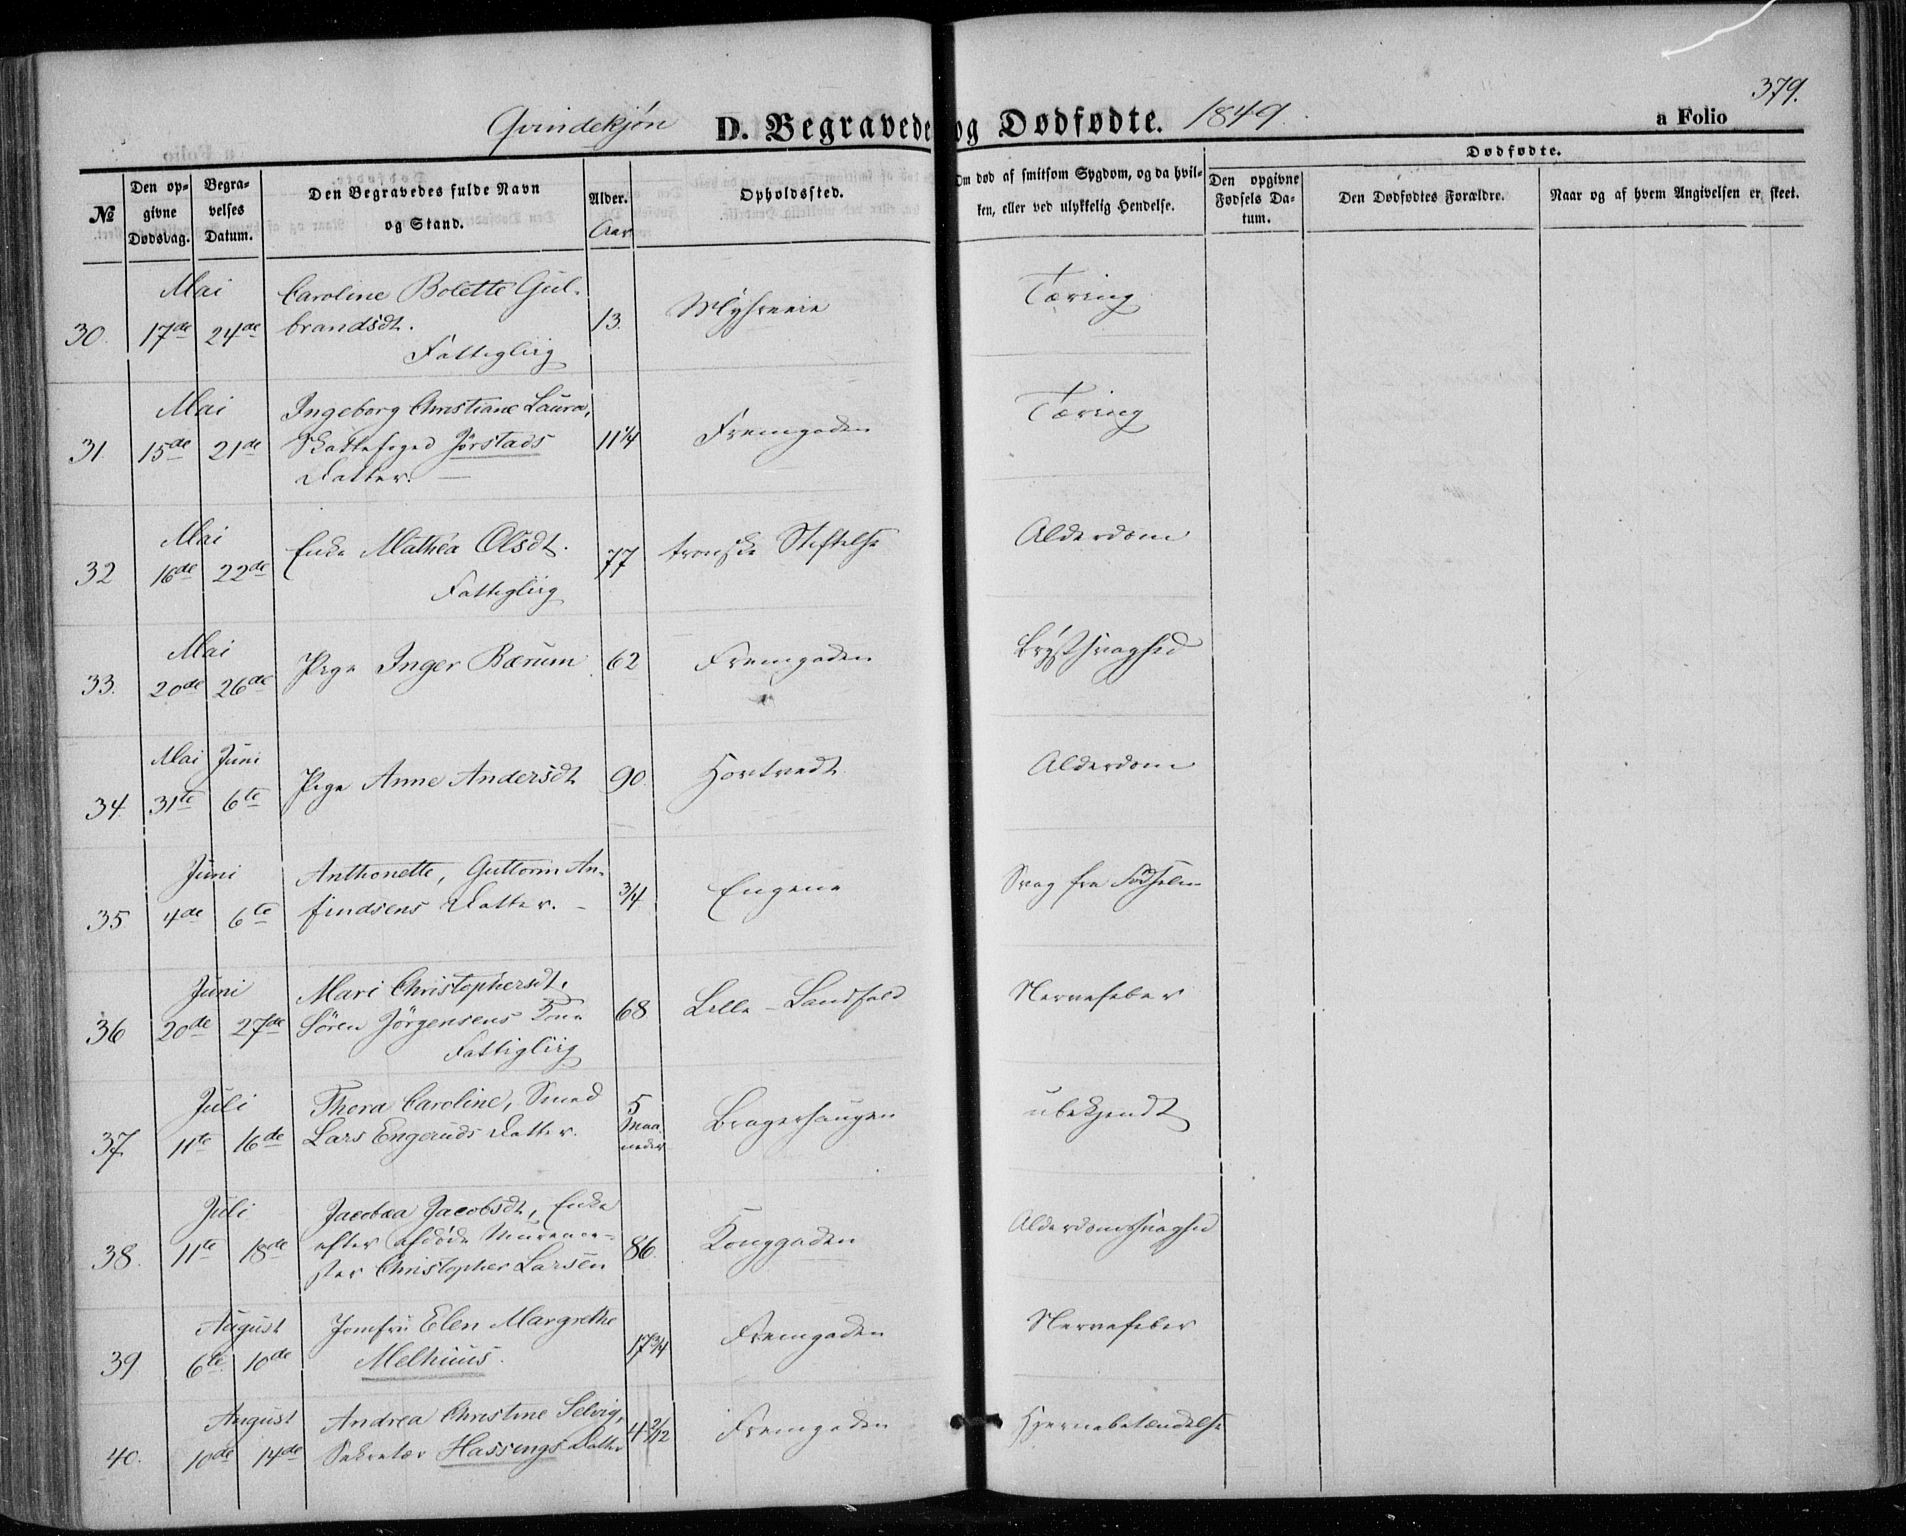 379.
Qvindekjøn D. Begravede og Dødfødte. 1849. a Folio
№
Den opgivne Dødsdag.
Begravelses Datum.
Den Begravedes fulde Navn og Stand.
Alder. Aar
Opholdssted.
Om død af smitsom Sygdom, og da hvilken, eller ved ulykkelig Hendelse.
Dødfødte.
Den opgivne Fødsels Datum.
Den Dødfødtes Forældre.
Naar og af hvem Angivelsen er skeet.
Mai
30. 17de 24de Caroline Bolette Gulbrandsdt. 13. Tæring
Fattiglig
Mai
31. 15de 21de Ingeborg Christiane Laura, 11 1/4 Fremgaden Tæring
Skattefoged Jørstads
Datter. —
Mai
32 16de 22de Enke Mathea Olsdt. 77 Stiftelse Alderdom
Fattiglig
Mai
33. 20de 26de Pige Inger Bærum 62 Fremgaden Brystsvaghed
Mai Juni
34. 31te 6te Pige Anne Andersdt 90. Hortvedt Alderdom
Juni
35 4de 6te Anthonette, Guttorm Anfindsens Datter. – 3/4 Engene Svag fra Fødselen
Juni
36 20de 27de Mari Christophersdt, 68 Lille-Landfald Nervefeber
Søren Jørgensens Kone
Fattiglig
Juli
37 11te 16de Thora Caroline, Smed 5 Maaneder Bragerhaugen ubekjendt
Lars Engeruds Datter.
Juli
38. 11te 18de Jacobæa Jacobsdt, Enke 86. Konggaden Alderdomssvaghed
efter afdøde Muremester Christopher Larsen
August
39 6te 10de Jomfru Elen Margrethe 17 3/4 Fremgaden Nervefeber
Melhuus.
August
40. 10de 14de Andrea Christine Selvig, 4 2/12 Fremgaden Hjernebetændelse
Sekretær Hassings Datter